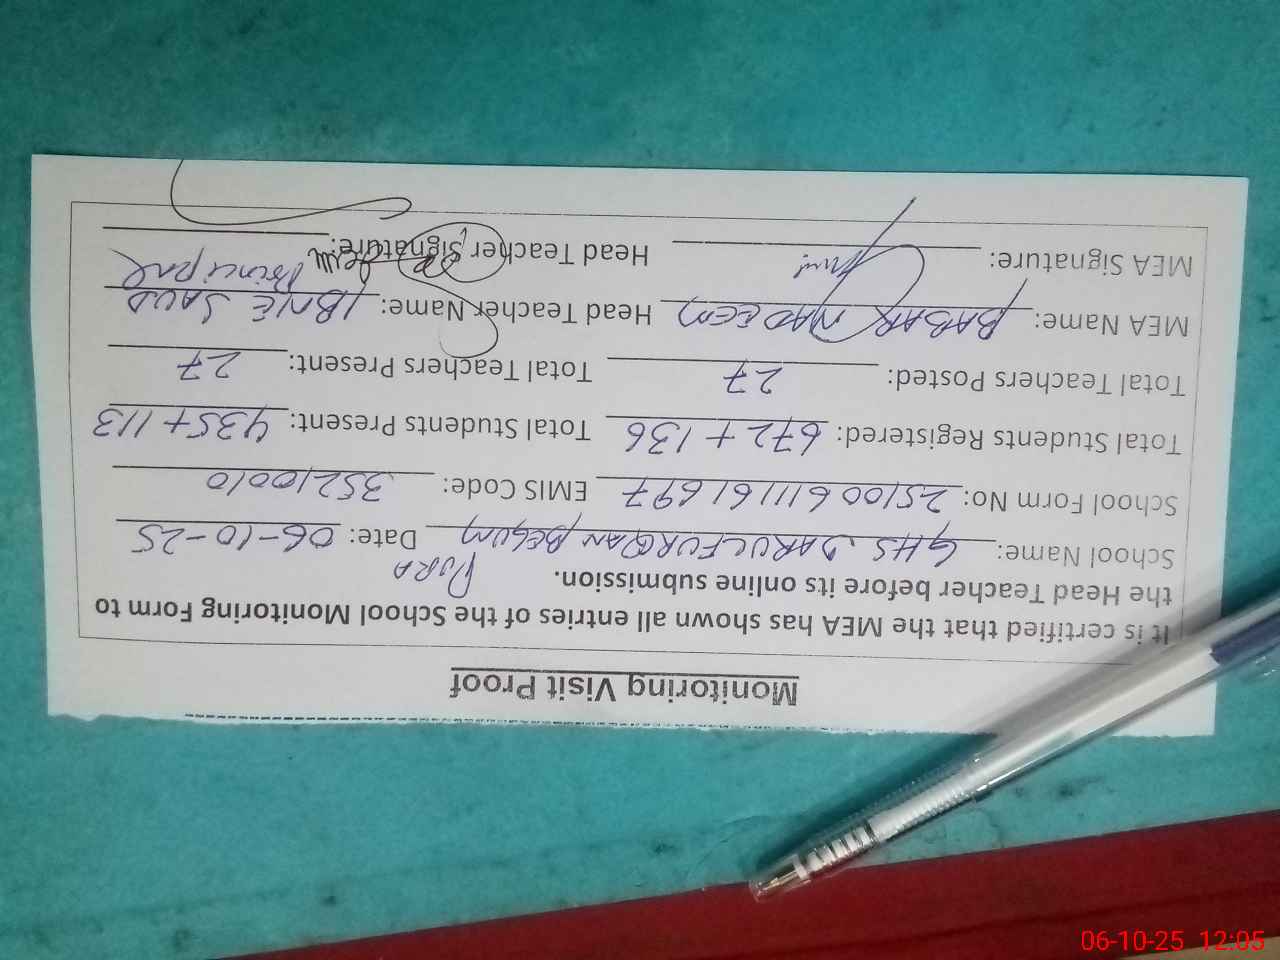 Monitoring Visit Proof
It is certified that the MEA has shown all entries of the School Monitoring Form to
the Head Teacher before its online submission.
School Name: GHS DARULFURQAN BEGUM PURA Date: 06-10-25
School Form No: 25100611161697 EMIS Code: 35210010
Total Students Registered: 672+136 Total Students Present: 435+113
Total Teachers Posted: 27 Total Teachers Present: 27
MEA Name: BABAR NADEEM Head Teacher Name: IBNE SAUD
MEA Signature: Head Teacher Signature: Principal
06-10-25 12:05